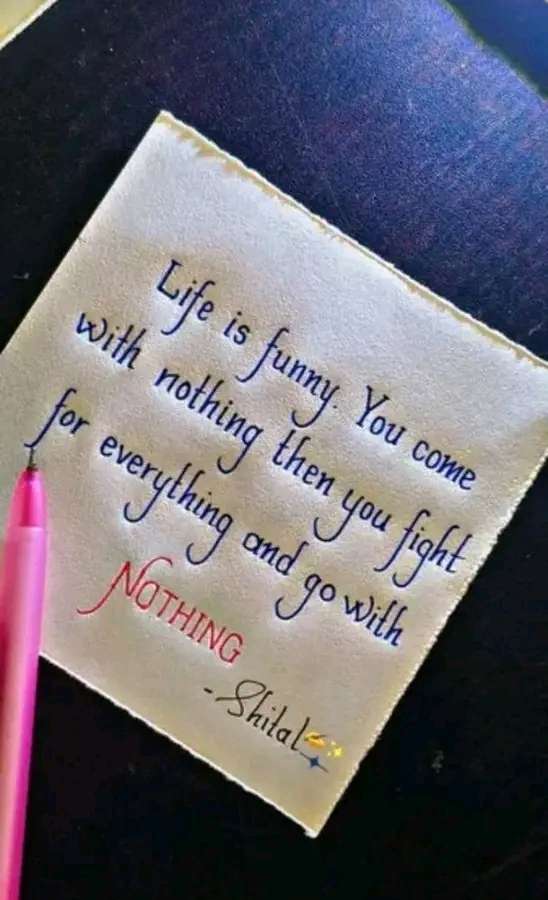 Life is funny. You come
with nothing then you fight
for everything and go with
NOTHING
-Shital